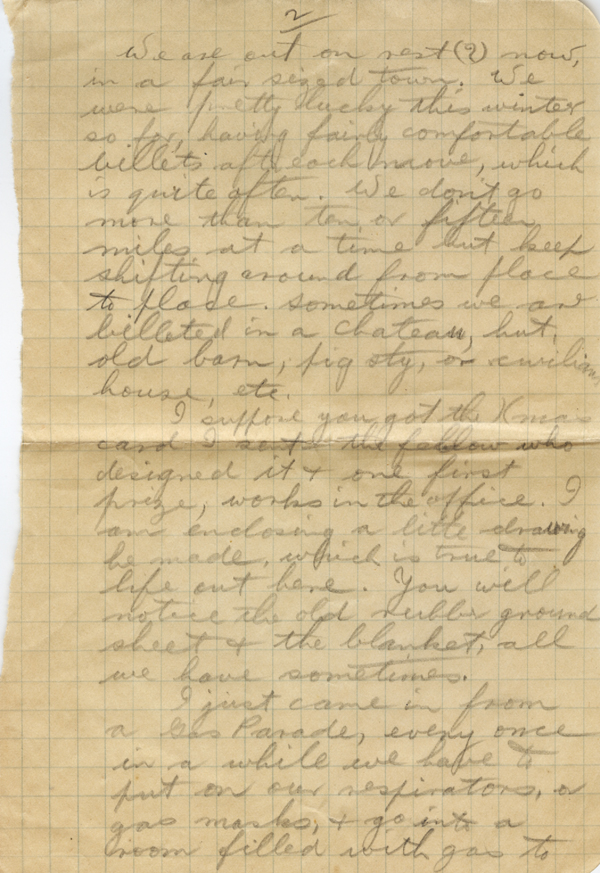 2
We are out on rest (?) now,
in a fair sized town. We
were pretty lucky this winter
so far, having fairly comfortable
billets after each moove, which
is quite often. We don't go
more than ten or fifteen
miles at a time but keep
shifting around from place
to place. sometimes we are
billeted in a chateau, hut,
old barn, pig sty, or civilians
house, etc.
I suppose you got the Xmas
card I sent the fellow who
designed it & one first
prize, works in the office. I
am enclosing a little drawing
he made, which is true to
life out here. You will
notice the old rubber ground
sheet & the blanket, all
we have sometimes.
I just came in from
a Gas Parade, every once
in a while we have to
put on our respirators, or
gas masks, & go into a
room filled with gas to